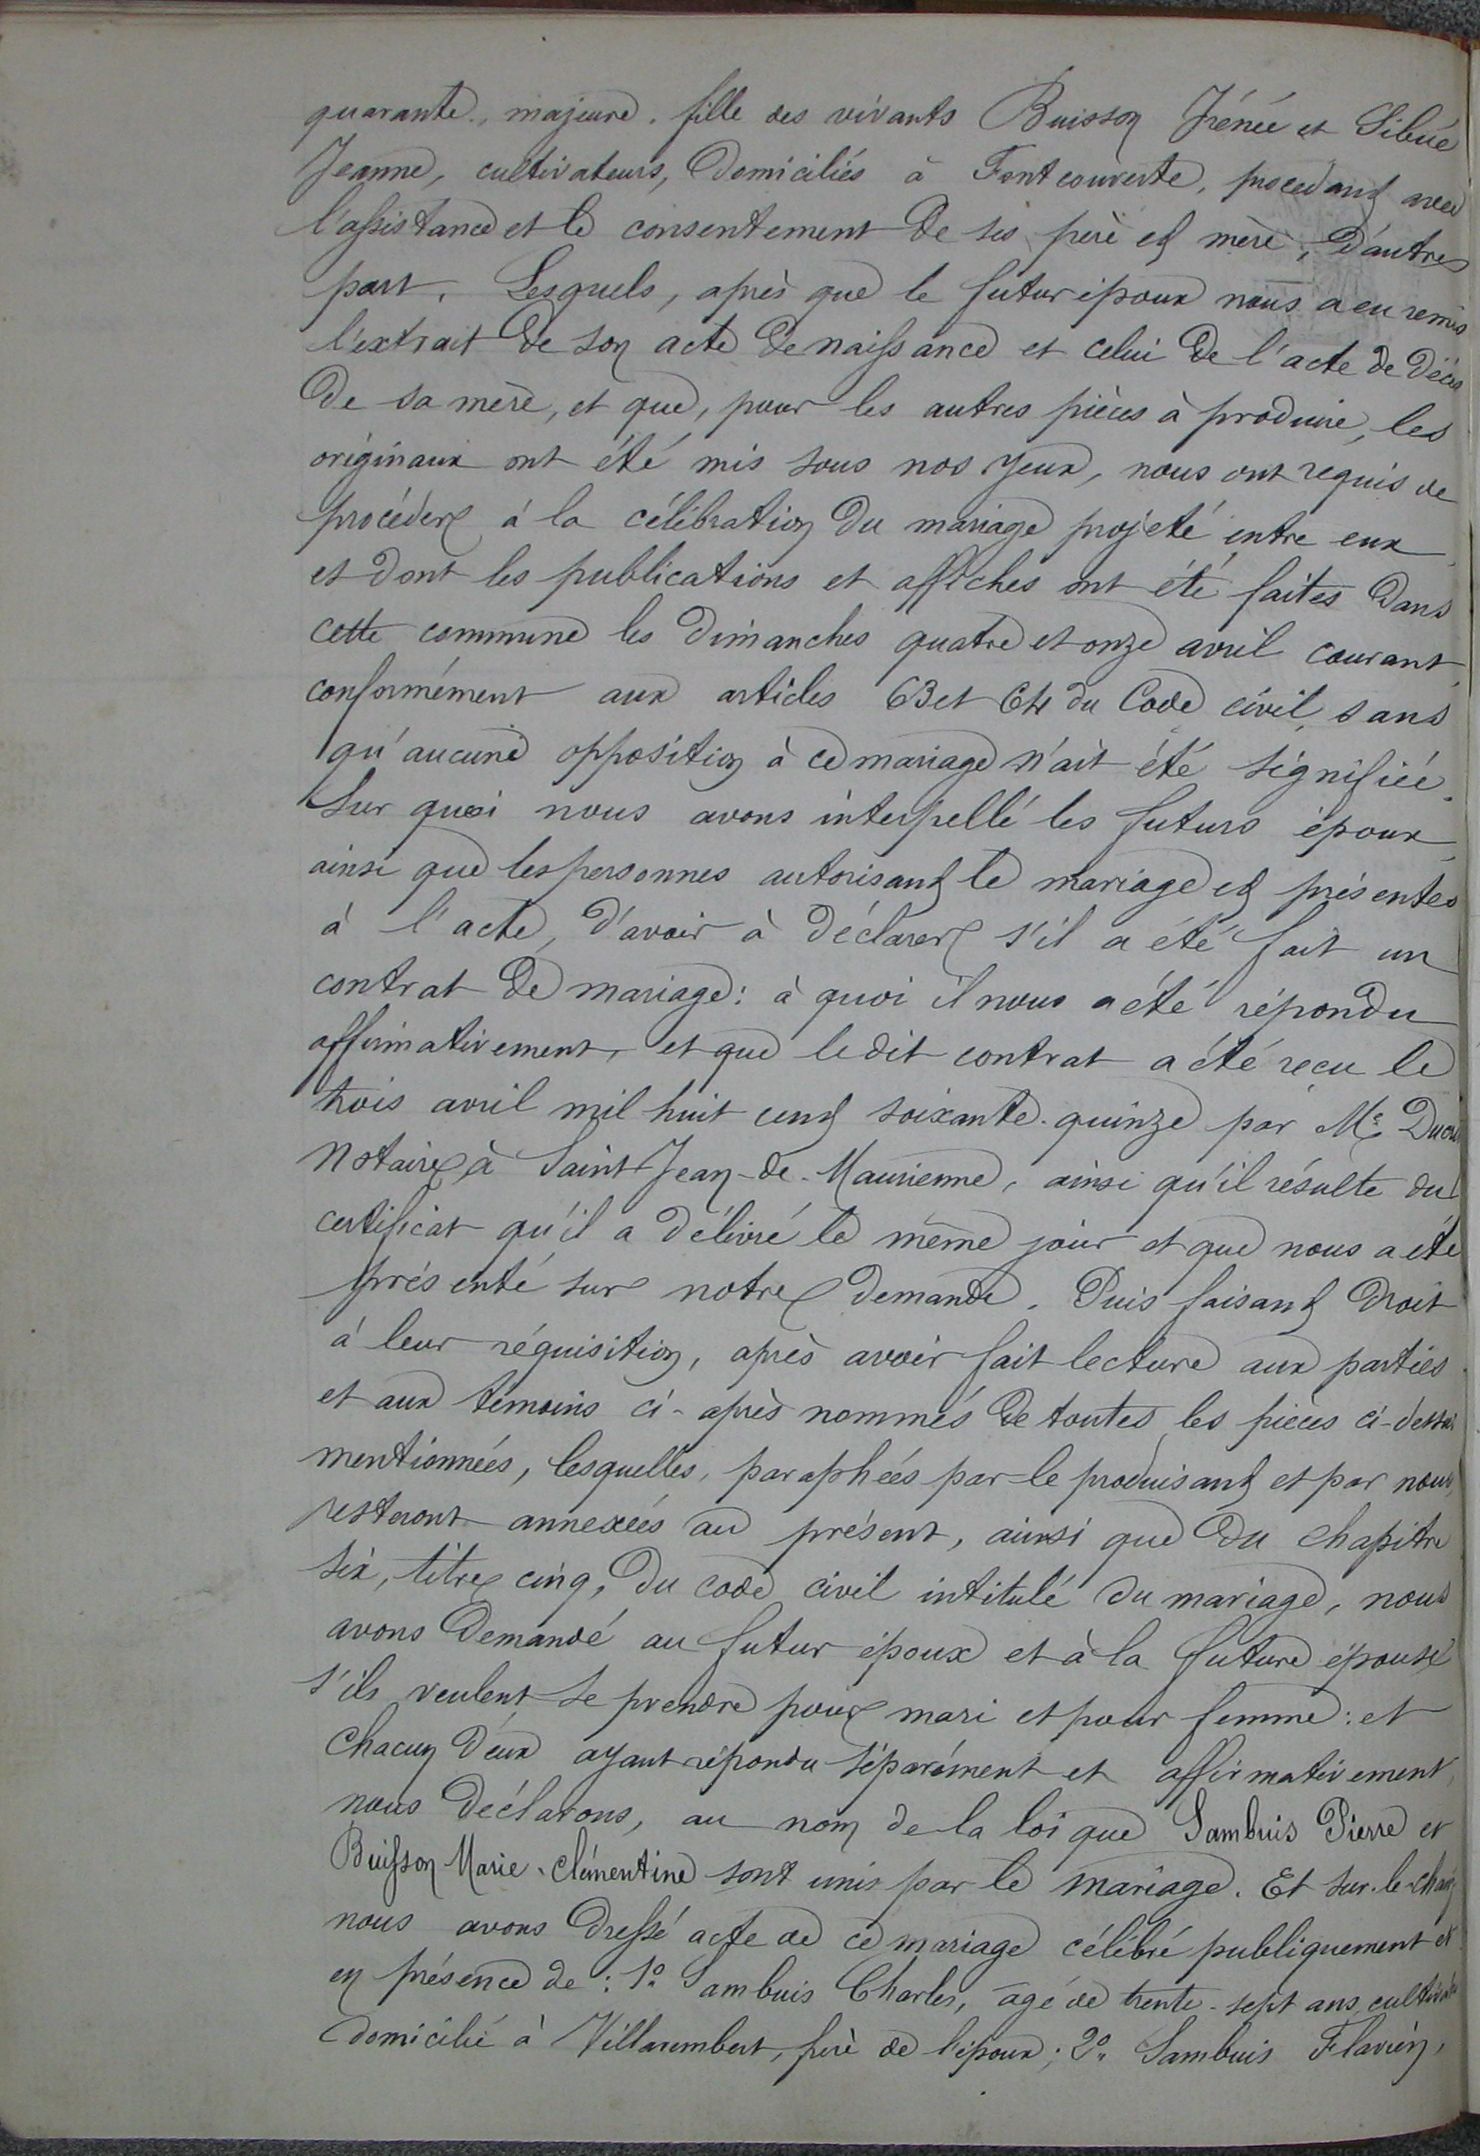 quarante, majeure, fille des vivants Buisson Irénée et Sibué
Jeanne, cultivateurs, domiciliés à Fontcouverte, procédant avec
l'assistance et le consentement de ses père et mère, d'autre
part. Lesquels, après que le futur époux nous a eu remis
l'extrait de son acte de naissance et celui de l'acte de décès
de sa mère, et que, pour les autres pièces à produire, les
originaux ont été mis sous nos yeux, nous ont requis de
procéder à la célébration du mariage projeté entre eux
et dont les publications et affiches ont été faites dans
cette commune les dimanches quatre et onze avril courant,
conformément aux articles 63 et 64 du Code civil, sans
qu'aucune opposition à ce mariage n'ait été signifiée.
Sur quoi nous avons interpellé les futurs époux,
ainsi que les personnes autorisant le mariage et présentes
à l'acte, d'avoir à déclarer s'il a été fait un
contrat de mariage: à quoi il nous a été répondu
affirmativement, et que le dit contrat a été reçu le
trois avril mil huit cent soixante-quinze par Me
notaire à Saint-Jean-de-Maurienne, ainsi qu'il résulte du
certificat qu'il a délivré le même jour et que nous a été
présenté sur notre demande. Puis faisant droit
à leur réquisition, après avoir fait lecture aux parties
et aux témoins ci-après nommés de toutes les pièces ci-dessus
mentionnées, lesquelles, paraphées par le produisant et par nous,
resteront annexées au présent, ainsi que du chapitre
six, titre cinq, du code civil intitulé du mariage, nous
avons demandé au futur époux et à la future épouse
s'ils veulent se prendre pour mari et pour femme: et
chacun d'eux ayant répondu séparément et affirmativement,
nous déclarons, au nom de la loi que Sambuis Pierre et
Buisson Marie-Clémentine sont unis par le mariage. Et sur-le-champ
nous avons dressé acte de ce mariage célébré publiquement et
en présence de: 1° Sambuis Charles, âgé de trente-sept ans, cultivateur
domicilié à Villarembert, frère de l'époux; 2° Sambuis Flavien,